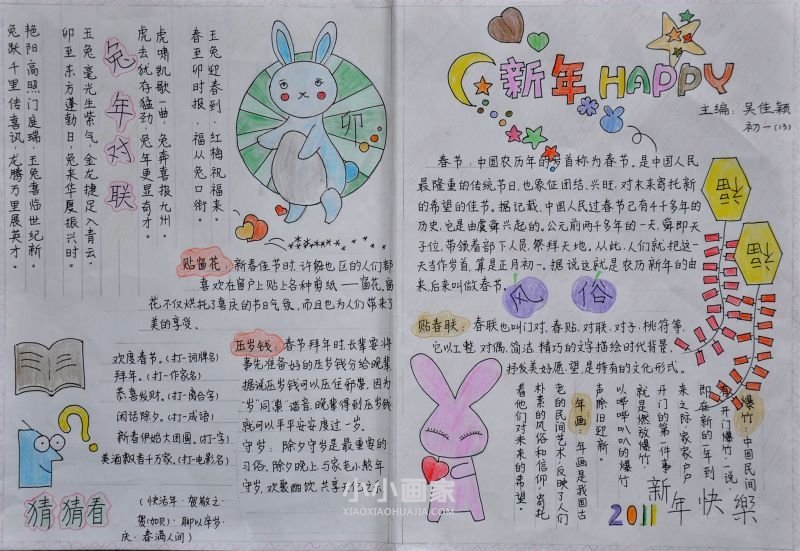 兔年对联
玉兔迎春到,红梅祝福来。
春至卯时报,福从兔口衔。
虎啸凯歌一曲,兔奔喜报九州。
虎去犹存猛劲,兔年更显奇才。
玉兔毫光生紫气,金龙捷足入青云。
卯至东方蓬勃日,兔来华夏振兴时。
艳阳高照门庭瑞,玉兔喜临世纪新。
兔跃千里传喜讯,龙腾万里展英才。
卯
贴窗花:新春佳节时,许多地区的人们都
喜欢在窗户上贴上各种剪纸——窗花。窗
花不仅烘托了喜庆的节日气氛,而且也为人们带来了
美的享受。
欢度春节。(打一词牌名)
拜年。(打一作家名)
恭喜发财。(打一离合字)
闲话除夕。(打一成语)
新春伊始大团圆。(打一字)
美酒飘香千万家。(打一电影名)
猜猜看
(快活年·贺敬之·
赍(加贝)·聊以卒岁·
庆·春满人间)
压岁钱:春节拜年时,长辈要将
事先准备好的压岁钱分给晚辈,
据说压岁钱可以压住邪祟,因为
“岁”同“祟”谐音,晚辈得到压岁钱
就可以平平安安度过一岁。
守岁:除夕守岁是最重要的
习俗,除夕晚上与家老小熬年
守岁,欢聚酣饮,共享天伦之乐
新年HAPPY
主编:吴佳颖
初一(13)
春节:中国农历年的岁首称为春节。是中国人民
最隆重的传统节日,也象征团结,兴旺,对未来寄托新
的希望的佳节。据记载,中国人民过春节已有4千多年的
历史,它是由虞舜兴起的。公元前两千多年的一天,舜即天
子位,带领着部下人员,祭拜天地。从此,人们就把这一
天当作岁首,算是正月初一。据说这就是农历新年的由
来,后来叫做春节。
福
福
风俗
贴春联:春联也叫门对、春贴、对联、对子,桃符等,
它以工整、对偶、简洁、精巧的文字描绘时代背景,
抒发美好愿望,是特有的文化形式。
爆竹:中国民间
有“开门爆竹”一说。
即在新的一年到
来之际,家家户户
开门的第一件事
就是燃放爆竹
以哔哔叭叭的爆竹
声除旧迎新。
年画:年画是我国古
老的民间艺术,反映了人们
朴素的风俗和信仰,寄托
着他们对未来的希望。
2011
新年快樂
小小画家
XIAOXIAOHUAJIA.COM